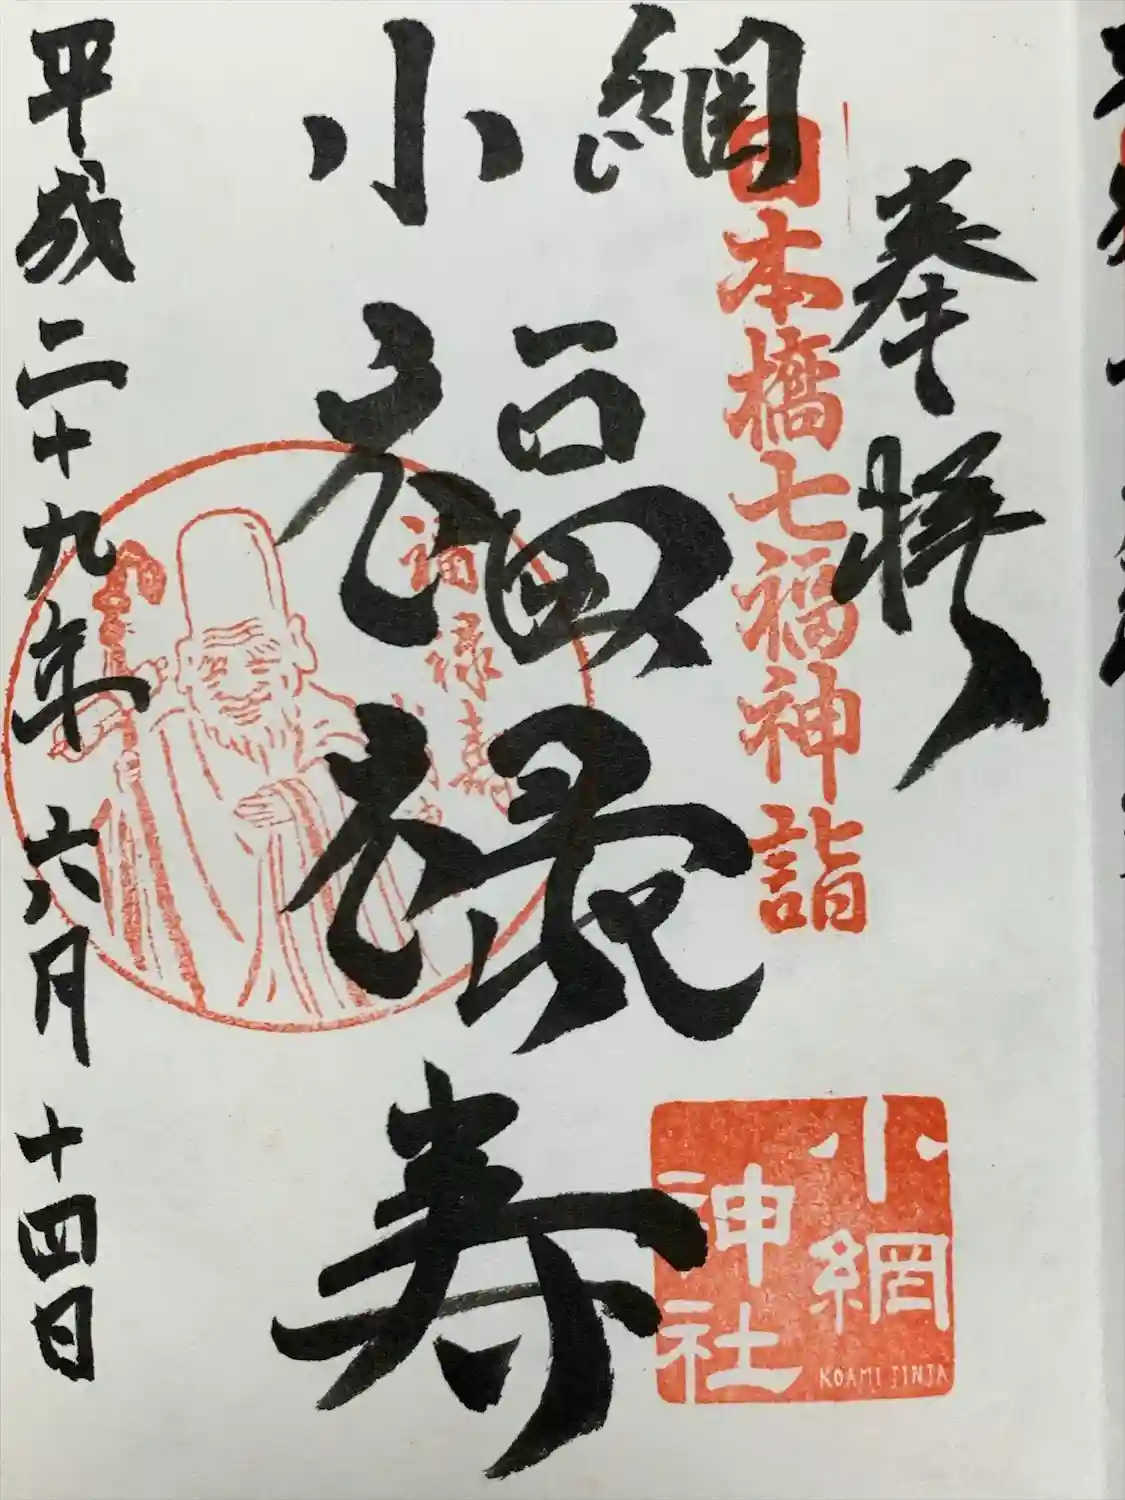 奉拝
日本橋七福神詣
小網
福禄寿
福禄寿
平成二十九年 六月 十四日
小網
神社
KOAMI JINJA